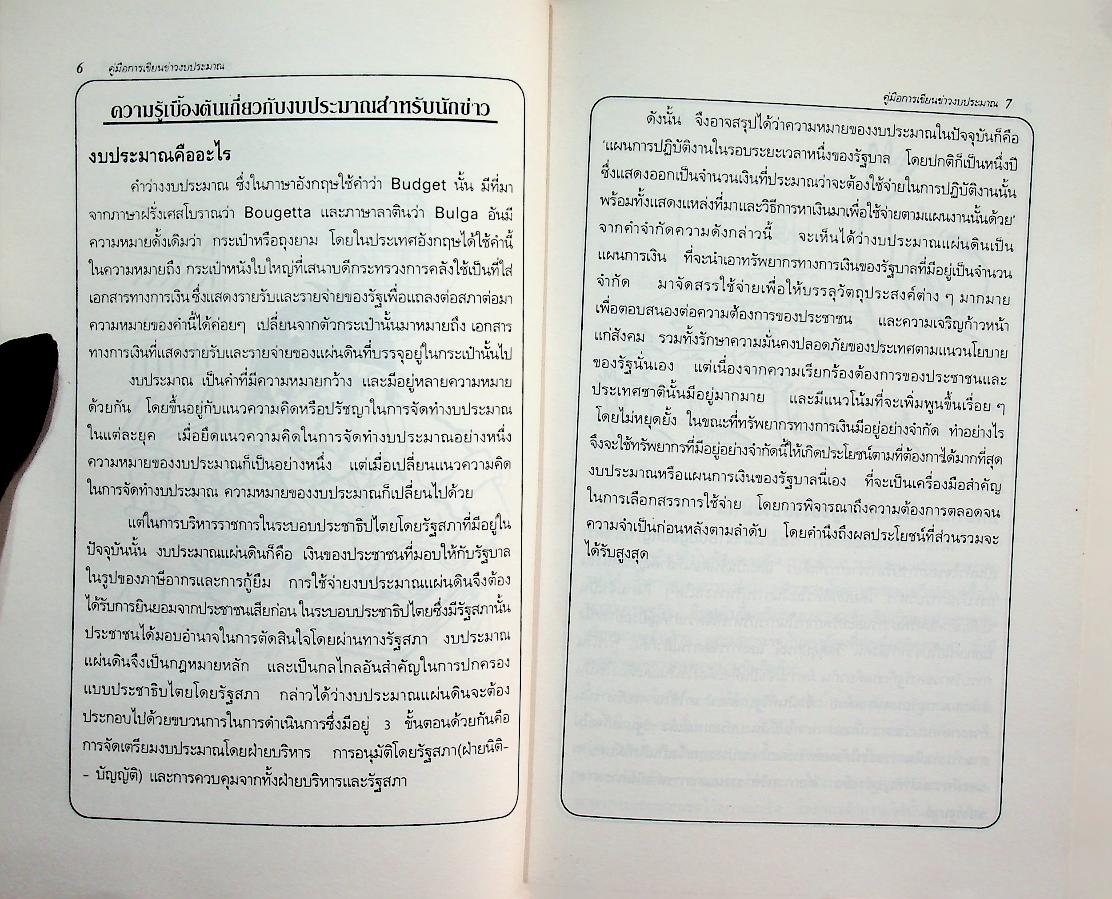 6 คู่มือการเขียนข่าวงบประมาณ
ความรู้เบื้องต้นเกี่ยวกับงบประมาณสำหรับนักข่าว
งบประมาณคืออะไร
คำว่างบประมาณ ซึ่งในภาษาอังกฤษใช้คำว่า Budget นั้น มีที่มา
จากภาษาฝรั่งเศสโบราณว่า Bougetta และภาษาลาตินว่า Bulga อันมี
ความหมายดั้งเดิมว่า กระเป๋าหรือถุงยาม โดยในประเทศอังกฤษได้ใช้คำนี้
ในความหมายถึง กระเป๋าหนังใบใหญ่ที่เสนาบดีกระทรวงการคลังใช้เป็นที่ใส่
เอกสารทางการเงินซึ่งแสดงรายรับและรายจ่ายของรัฐเพื่อแถลงต่อสภาต่อมา
ความหมายของคำนี้ได้ค่อยๆ เปลี่ยนจากตัวกระเป๋านั้นมาหมายถึง เอกสาร
ทางการเงินที่แสดงรายรับและรายจ่ายของแผ่นดินที่บรรจุอยู่ในกระเป๋านั้นไป
งบประมาณ เป็นคำที่มีความหมายกว้าง และมีอยู่หลายความหมาย
ด้วยกัน โดยขึ้นอยู่กับแนวความคิดหรือปรัชญาในการจัดทำงบประมาณ
ในแต่ละยุค เมื่อยึดแนวความคิดในการจัดทำงบประมาณอย่างหนึ่ง
ความหมายของงบประมาณก็เป็นอย่างหนึ่ง แต่เมื่อเปลี่ยนแนวความคิด
ในการจัดทำงบประมาณ ความหมายของงบประมาณก็เปลี่ยนไปด้วย
แต่ในการบริหารราชการในระบอบประชาธิปไตยโดยรัฐสภาที่มีอยู่ใน
ปัจจุบันนั้น งบประมาณแผ่นดินก็คือ เงินของประชาชนที่มอบให้กับรัฐบาล
ในรูปของภาษีอากรและการกู้ยืม การใช้จ่ายงบประมาณแผ่นดินจึงต้อง
ได้รับการยินยอมจากประชาชนเสียก่อน ในระบอบประชาธิปไตยซึ่งมีรัฐสภานั้น
ประชาชนได้มอบอำนาจในการตัดสินใจโดยผ่านทางรัฐสภา งบประมาณ
แผ่นดินจึงเป็นกฎหมายหลัก และเป็นกลไกลอันสำคัญในการปกครอง
แบบประชาธิปไตยโดยรัฐสภา กล่าวได้ว่างบประมาณแผ่นดินจะต้อง
ประกอบไปด้วยขบวนการในการดำเนินการซึ่งมีอยู่ 3 ขั้นตอนด้วยกันคือ
การจัดเตรียมงบประมาณโดยฝ่ายบริหาร การอนุมัติโดยรัฐสภา(ฝ่ายนิติ-
- บัญญัติ) และการควบคุมจากทั้งฝ่ายบริหารและรัฐสภา
คู่มือการเขียนข่าวงบประมาณ 7
ดังนั้น จึงอาจสรุปได้ว่าความหมายของงบประมาณในปัจจุบันก็คือ
'แผนการปฏิบัติงานในรอบระยะเวลาหนึ่งของรัฐบาล โดยปกติก็เป็นหนึ่งปี
ซึ่งแสดงออกเป็นจำนวนเงินที่ประมาณว่าจะต้องใช้จ่ายในการปฏิบัติงานนั้น
พร้อมทั้งแสดงแหล่งที่มาและวิธีการหาเงินมาเพื่อใช้จ่ายตามแผนงานนั้นด้วย'
จากคำจำกัดความดังกล่าวนี้ จะเห็นได้ว่างบประมาณแผ่นดินเป็น
แผนการเงิน ที่จะนำเอาทรัพยากรทางการเงินของรัฐบาลที่มีอยู่เป็นจำนวน
จำกัด มาจัดสรรใช้จ่ายเพื่อให้บรรลุวัตถุประสงค์ต่าง ๆ มากมาย
เพื่อตอบสนองต่อความต้องการของประชาชน และความเจริญก้าวหน้า
แก่สังคม รวมทั้งรักษาความมั่นคงปลอดภัยของประเทศตามแนวนโยบาย
ของรัฐนั่นเอง แต่เนื่องจากความเรียกร้องต้องการของประชาชนและ
ประเทศชาตินั้นมีอยู่มากมาย และมีแนวโน้มที่จะเพิ่มพูนขึ้นเรื่อย ๆ
โดยไม่หยุดยั้ง ในขณะที่ทรัพยากรทางการเงินมีอยู่อย่างจำกัด ทำอย่างไร
จึงจะใช้ทรัพยากรที่มีอยู่อย่างจำกัดนี้ให้เกิดประโยชน์ตามที่ต้องการได้มากที่สุด
งบประมาณหรือแผนการเงินของรัฐบาลนี่เอง ที่จะเป็นเครื่องมือสำคัญ
ในการเลือกสรรการใช้จ่าย โดยการพิจารณาถึงความต้องการตลอดจน
ความจำเป็นก่อนหลังตามลำดับ โดยคำนึงถึงผลประโยชน์ที่ส่วนรวมจะ
ได้รับสูงสุด